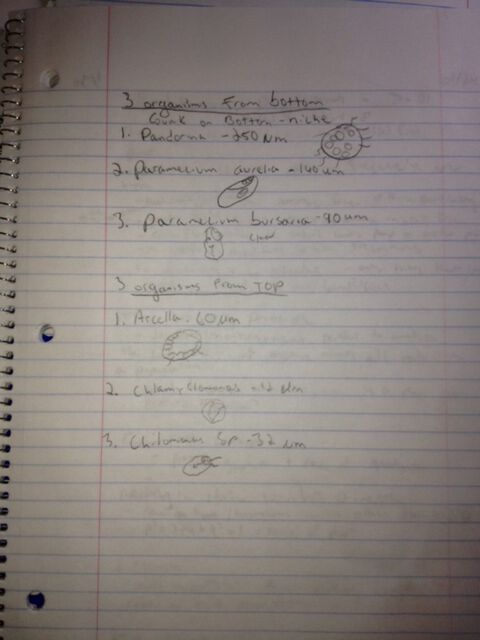 3 organisms From bottom
Gunk on Bottom - niche
1. Pandorina - 250 um
2. Paramecium aurelia - 140 um
3. Paramecium bursaria - 90 um
3 organisms From TOP
1. Arcella. 60 um
2. Chlamydomonas - 12 um
3. Chilomonas Sp. - 32 um